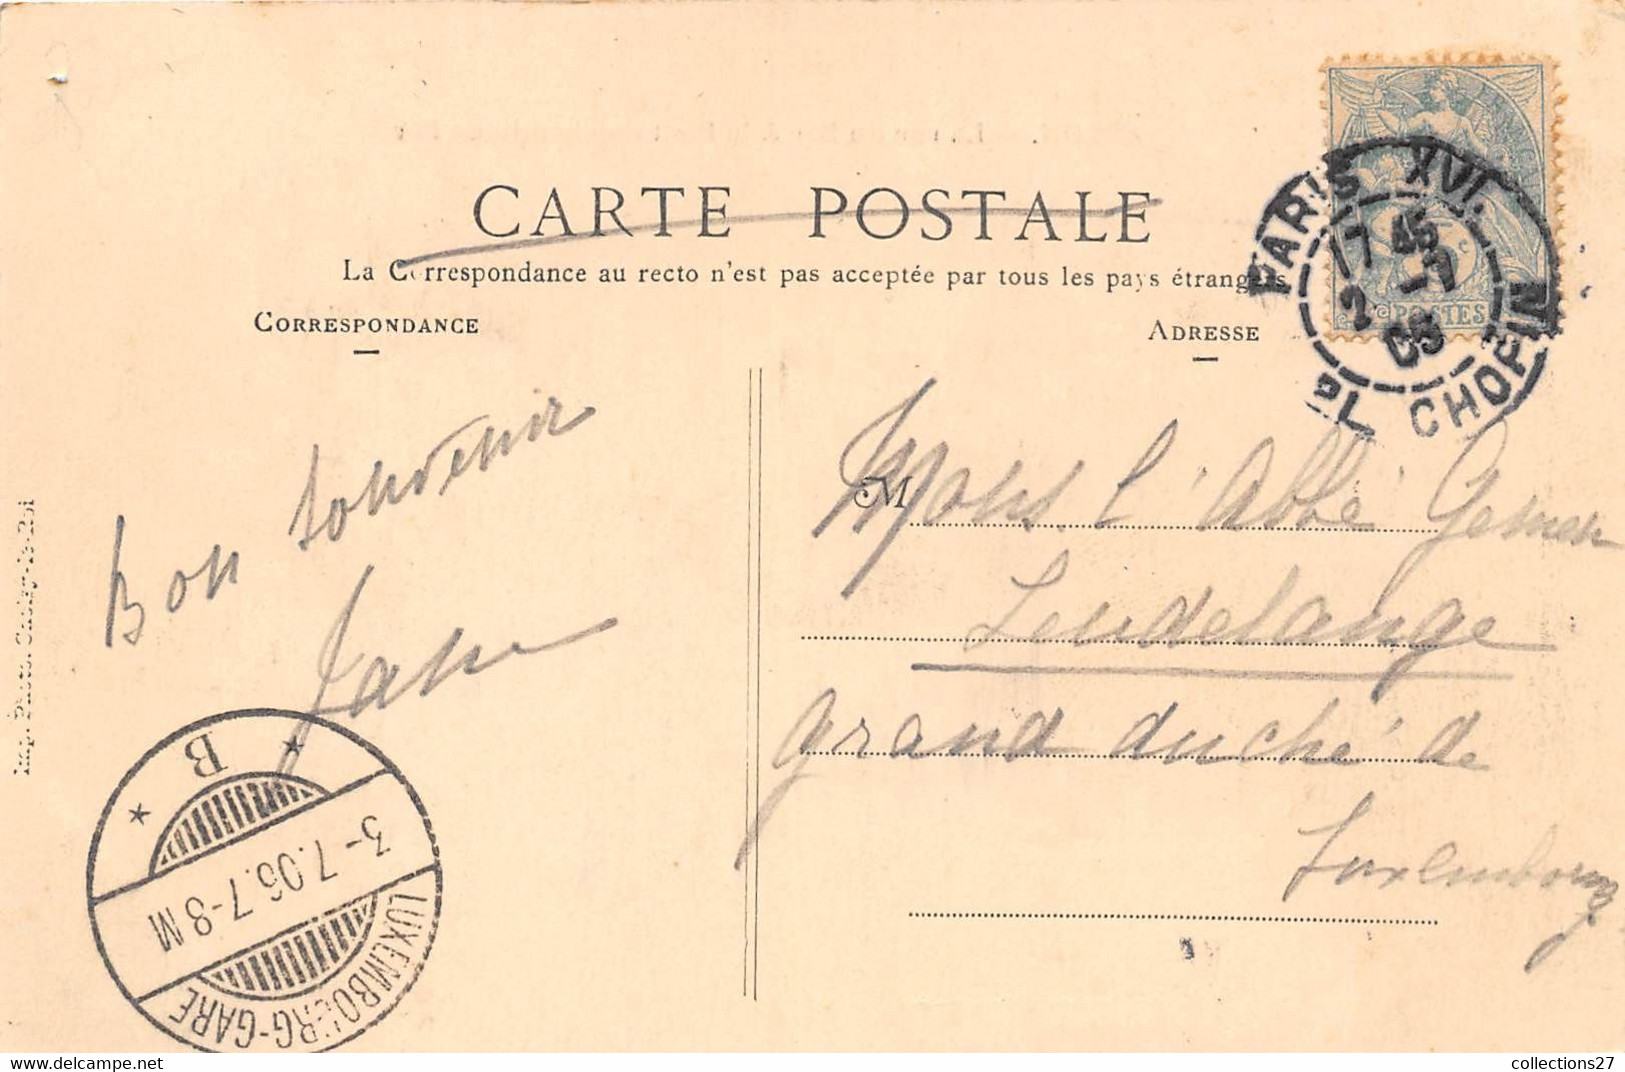 CARTE POSTALE
La Correspondance au recto n'est pas acceptée par tous les pays étrangers
CORRESPONDANCE
ADRESSE
PARIS XVI.
17 45
2 -7
06
PL. CHOPIN
5c
POSTES
Bon souvenir
M
Mons. l'Abbé
Leudelange
grand duché de
Luxembourg
B
3-7.06.7-8 M
LUXEMBOURG-GARE
Imp. Photo. Choisy-le-Roi
collections27